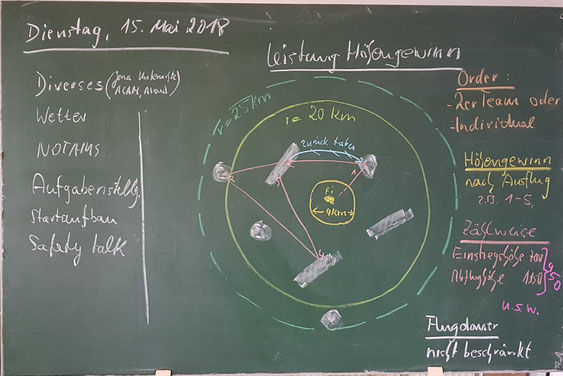 Dienstag, 15. Mai 2018
Diverses (Jena
Wetter
NOTAMS
Aufgabenstellg.
Startaufbau
Safety talk
Leistung Höhengewinn
r = 25 km
r = 20 km
zurück
Fi
4km
Order:
- 2er Team oder
- Individual
Höhengewinn
nach Ausflug
z.B. 1-5
Zählweise
Einstiegshöhe 700
Abflughöhe 1150
450
u.s.w.
Flugdauer
nicht beschränkt